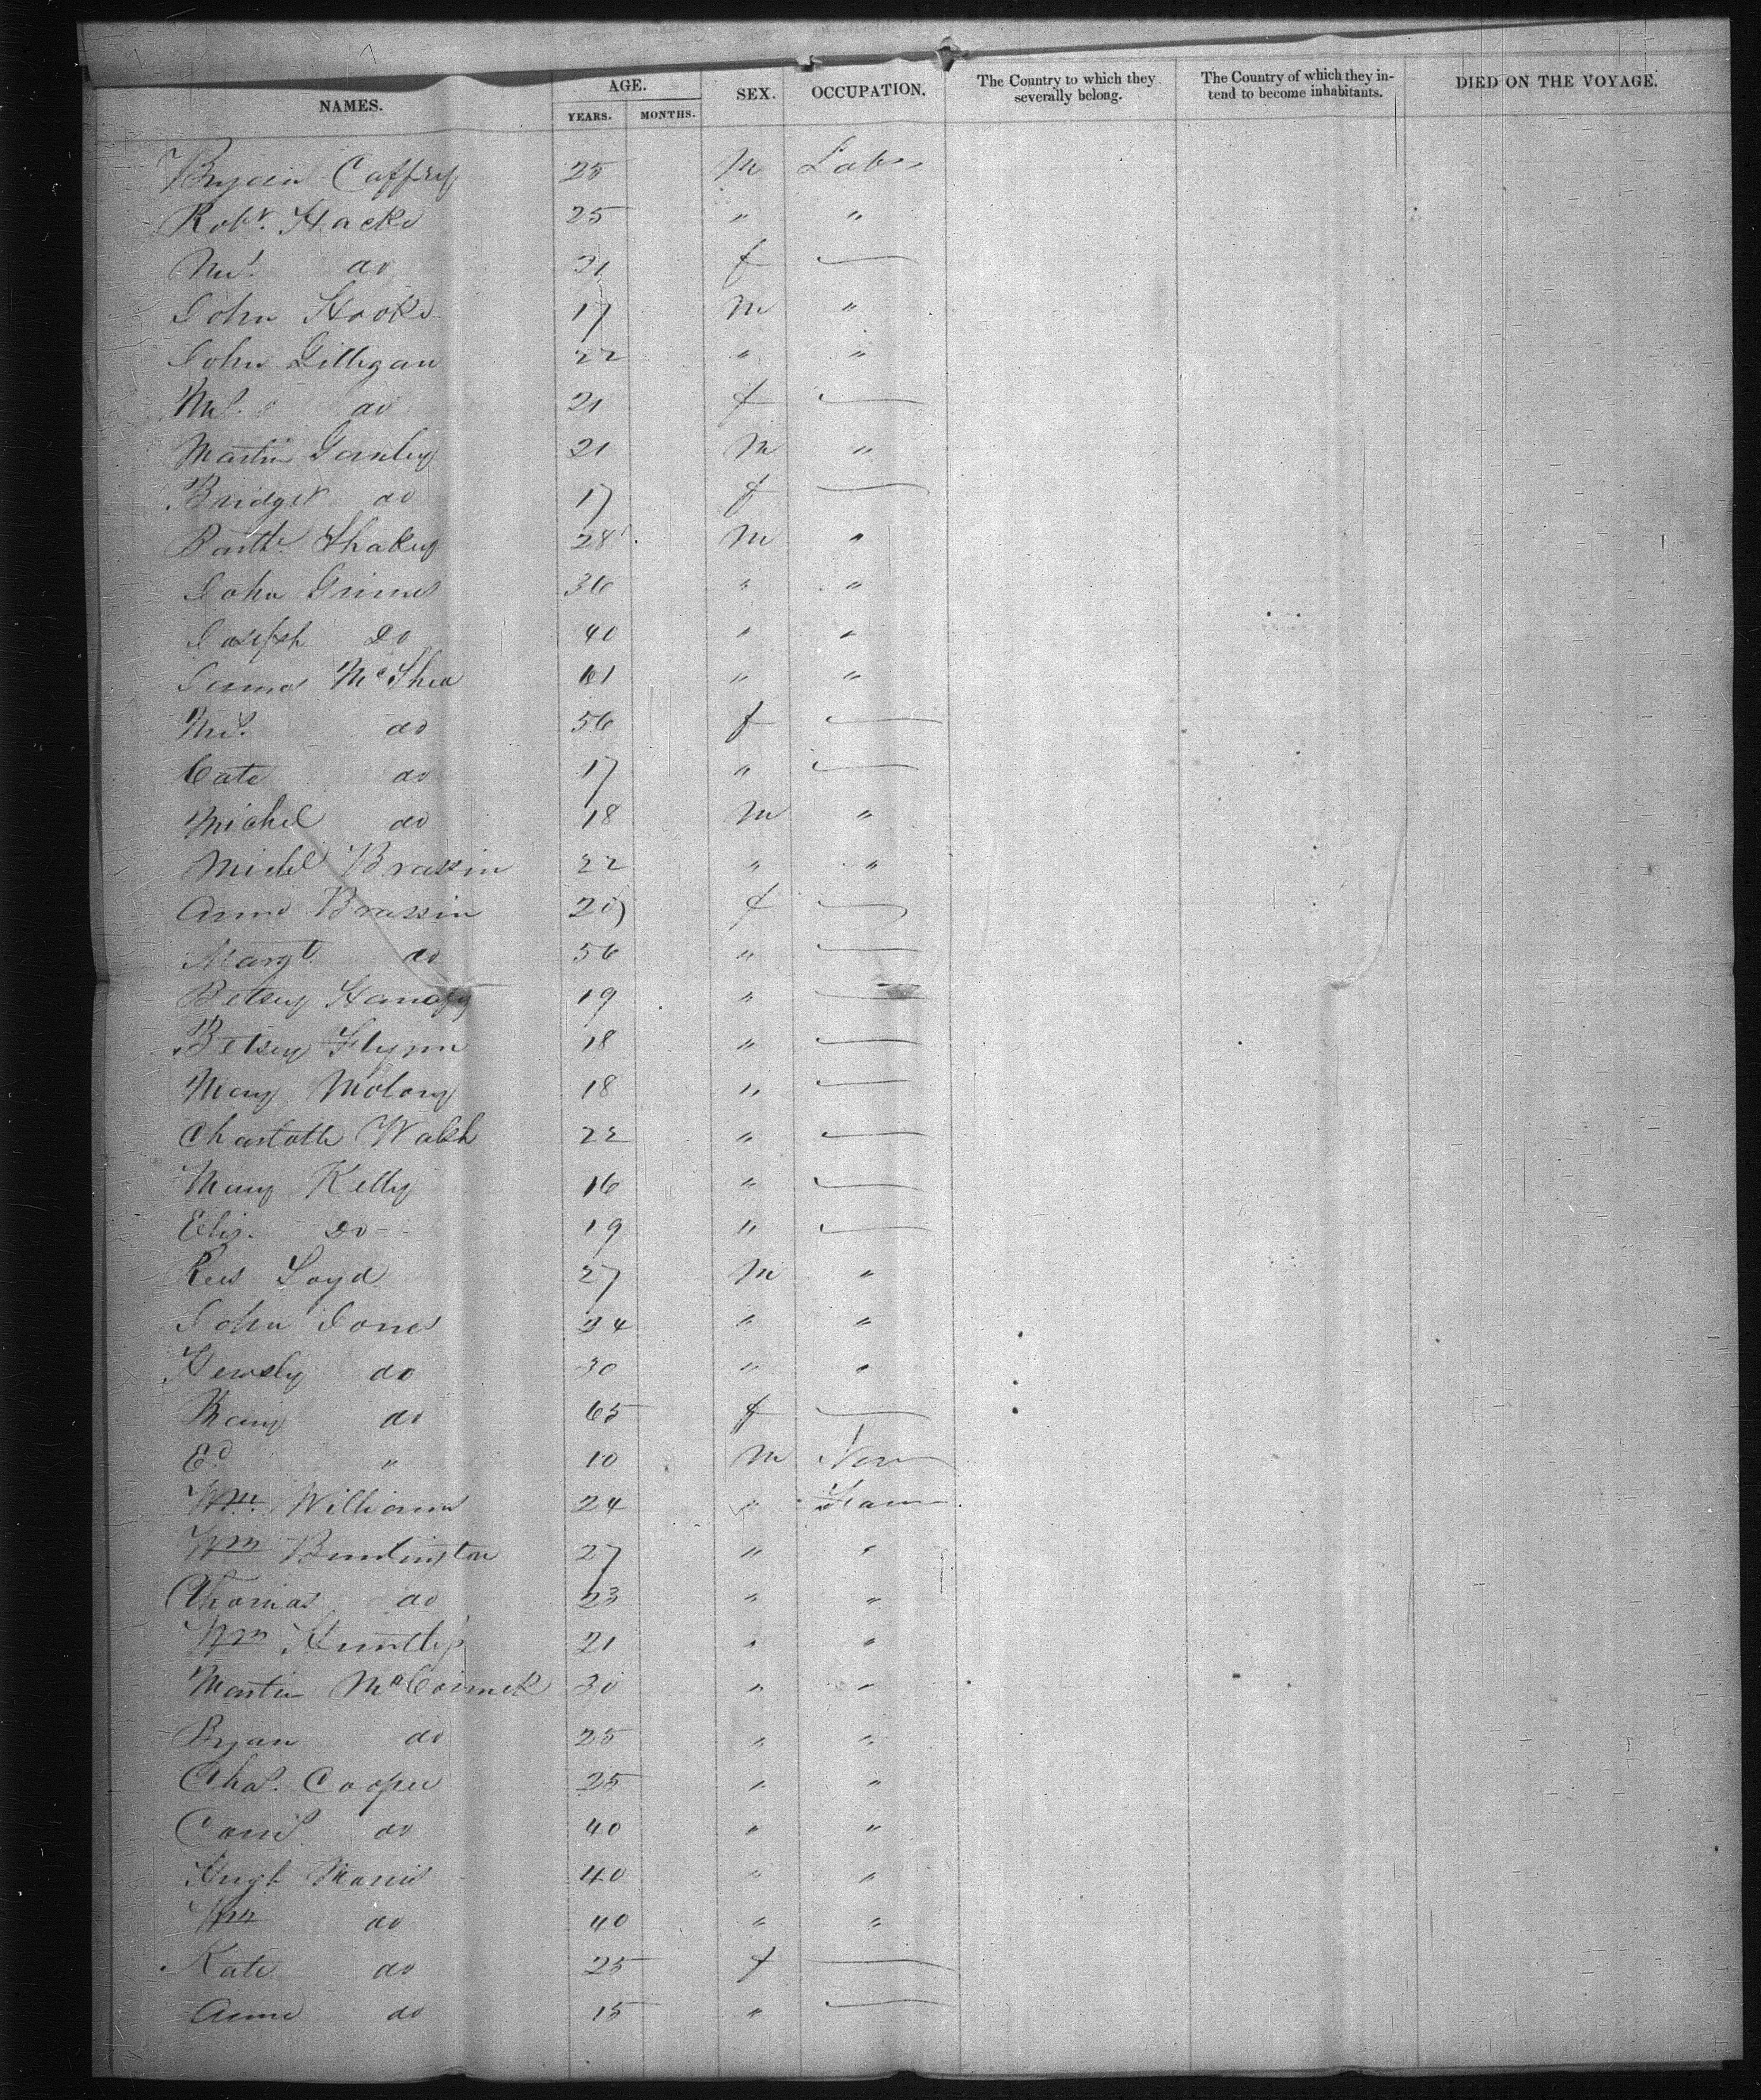 NAMES. AGE. SEX. OCCUPATION. The Country to which they severally belong. The Country of which they intend to become inhabitants. DIED ON THE VOYAGE.
YEARS. MONTHS.
Caffrey 25 m Labr
Robt. Hacke 25 " "
Mrs. do 21 f
John Hooke 17 m "
John Gilligan 22 " "
Mrs. do 21 f
Martin Ganley 21 m "
Bridget do 17 f
Barth. Shakey 28 m "
John Grimes 36 " "
Joseph Do 40 " "
James McShea 61 " "
Mrs. do 56 f
Cate do 17 "
Michel do 18 m "
Michl Brassin 22 " "
Anne Brassin 20 f
Margt. do 56 "
Betsey 19 "
Betsey Flynn 18 "
Mary Molony 18 "
Charlotte Walsh 22 "
Mary Kelly 16 "
Eliz. Do 19 "
Rees Loyd 27 m "
John Jones 34 " "
do 30 " "
Mary do 65 f
Ed " 10 m Non
Wm. Williams 24 " Farm
Wm Buntington 27 " "
Thomas do 23 " "
Wm 21 " "
Martin McCormek 30 " "
Bryan do 25 " "
Chas. Cooper 25 " "
do 40 " "
Hugh Morris 40 " "
Wm do 40 " "
Kate do 25 f
Anne do 15 "